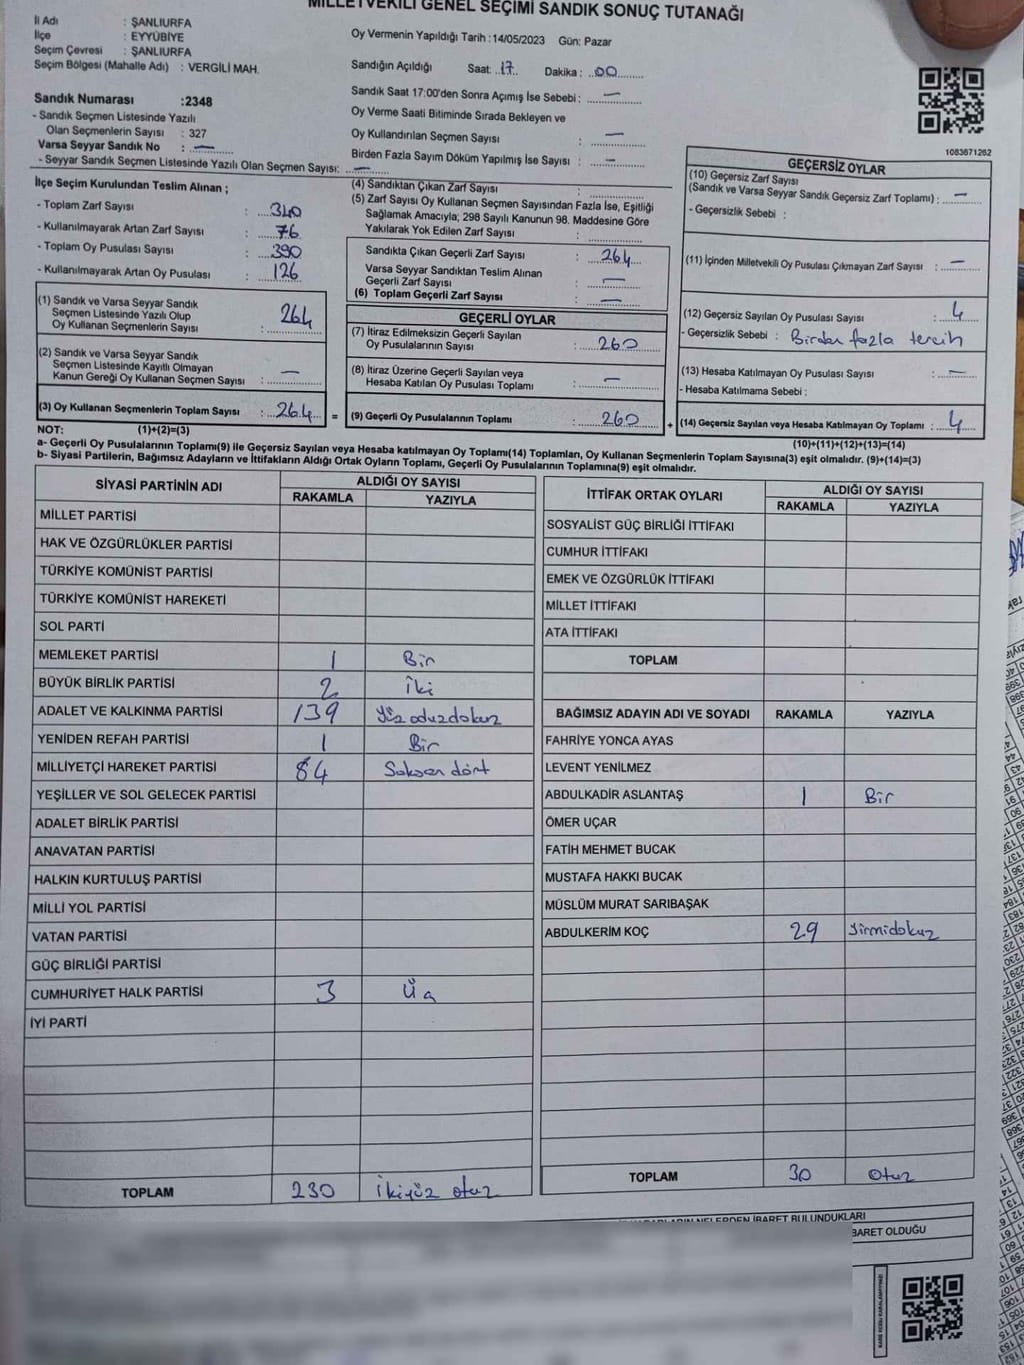 MİLLETVEKİLİ GENEL SEÇİMİ SANDIK SONUÇ TUTANAĞI
İl Adı : ŞANLIURFA
İlçe : EYYÜBİYE
Seçim Çevresi : ŞANLIURFA
Seçim Bölgesi (Mahalle Adı) : VERGİLİ MAH.
Oy Vermenin Yapıldığı Tarih :14/05/2023 Gün: Pazar
Sandığın Açıldığı Saat: 17 Dakika : 00
Sandık Saat 17:00'den Sonra Açımış İse Sebebi : —
Oy Verme Saati Bitiminde Sırada Bekleyen ve
Oy Kullandırılan Seçmen Sayısı : —
Birden Fazla Sayım Döküm Yapılmış İse Sayısı : —
Sandık Numarası :2348
- Sandık Seçmen Listesinde Yazılı
Olan Seçmenlerin Sayısı : 327
Varsa Seyyar Sandık No : —
- Seyyar Sandık Seçmen Listesinde Yazılı Olan Seçmen Sayısı: —
İlçe Seçim Kurulundan Teslim Alınan ;
- Toplam Zarf Sayısı : 340
- Kullanılmayarak Artan Zarf Sayısı : 76
- Toplam Oy Pusulası Sayısı : 390
- Kullanılmayarak Artan Oy Pusulası : 126
(1) Sandık ve Varsa Seyyar Sandık
Seçmen Listesinde Yazılı Olup
Oy Kullanan Seçmenlerin Sayısı : 264
(2) Sandık ve Varsa Seyyar Sandık
Seçmen Listesinde Kayıtlı Olmayan
Kanun Gereği Oy Kullanan Seçmen Sayısı : —
(3) Oy Kullanan Seçmenlerin Toplam Sayısı : 264
(4) Sandıktan Çıkan Zarf Sayısı :
(5) Zarf Sayısı Oy Kullanan Seçmen Sayısından Fazla İse, Eşitliği
Sağlamak Amacıyla; 298 Sayılı Kanunun 98. Maddesine Göre
Yakılarak Yok Edilen Zarf Sayısı :
Sandıkta Çıkan Geçerli Zarf Sayısı : 264
Varsa Seyyar Sandıktan Teslim Alınan
Geçerli Zarf Sayısı : —
(6) Toplam Geçerli Zarf Sayısı : —
GEÇERLİ OYLAR
(7) İtiraz Edilmeksizin Geçerli Sayılan
Oy Pusulalarının Sayısı : 260
(8) İtiraz Üzerine Geçerli Sayılan veya
Hesaba Katılan Oy Pusulası Toplamı : —
= (9) Geçerli Oy Pusulalarının Toplamı : 260
1083671262
GEÇERSİZ OYLAR
(10) Geçersiz Zarf Sayısı
(Sandık ve Varsa Seyyar Sandık Geçersiz Zarf Toplamı) : —
- Geçersizlik Sebebi :
(11) İçinden Milletvekili Oy Pusulası Çıkmayan Zarf Sayısı : —
(12) Geçersiz Sayılan Oy Pusulası Sayısı : 4
- Geçersizlik Sebebi : Birden fazla tercih
(13) Hesaba Katılmayan Oy Pusulası Sayısı : —
- Hesaba Katılmama Sebebi :
+ (14) Geçersiz Sayılan veya Hesaba Katılmayan Oy Toplamı : 4
NOT: (1)+(2)=(3) (10)+(11)+(12)+(13)=(14)
a- Geçerli Oy Pusulalarının Toplamı(9) ile Geçersiz Sayılan veya Hesaba katılmayan Oy Toplamı(14) Toplamları, Oy Kullanan Seçmenlerin Toplam Sayısına(3) eşit olmalıdır. (9)+(14)=(3)
b- Siyasi Partilerin, Bağımsız Adayların ve İttifakların Aldığı Ortak Oyların Toplamı, Geçerli Oy Pusulalarının Toplamına(9) eşit olmalıdır.
SİYASİ PARTİNİN ADI ALDIĞI OY SAYISI
RAKAMLA YAZIYLA
MİLLET PARTİSİ
HAK VE ÖZGÜRLÜKLER PARTİSİ
TÜRKİYE KOMÜNİST PARTİSİ
TÜRKİYE KOMÜNİST HAREKETİ
SOL PARTİ
MEMLEKET PARTİSİ 1 Bir
BÜYÜK BİRLİK PARTİSİ 2 İki
ADALET VE KALKINMA PARTİSİ 139 Yüz oduzdokuz
YENİDEN REFAH PARTİSİ 1 Bir
MİLLİYETÇİ HAREKET PARTİSİ 84 Seksen dört
YEŞİLLER VE SOL GELECEK PARTİSİ
ADALET BİRLİK PARTİSİ
ANAVATAN PARTİSİ
HALKIN KURTULUŞ PARTİSİ
MİLLİ YOL PARTİSİ
VATAN PARTİSİ
GÜÇ BİRLİĞİ PARTİSİ
CUMHURİYET HALK PARTİSİ 3 Üç
İYİ PARTİ
TOPLAM 230 İkiyüz otuz
İTTİFAK ORTAK OYLARI ALDIĞI OY SAYISI
RAKAMLA YAZIYLA
SOSYALİST GÜÇ BİRLİĞİ İTTİFAKI
CUMHUR İTTİFAKI
EMEK VE ÖZGÜRLÜK İTTİFAKI
MİLLET İTTİFAKI
ATA İTTİFAKI
TOPLAM
BAĞIMSIZ ADAYIN ADI VE SOYADI RAKAMLA YAZIYLA
FAHRİYE YONCA AYAS
LEVENT YENİLMEZ
ABDULKADİR ASLANTAŞ 1 Bir
ÖMER UÇAR
FATİH MEHMET BUCAK
MUSTAFA HAKKI BUCAK
MÜSLÜM MURAT SARIBAŞAK
ABDULKERİM KOÇ 29 Yirmidokuz
TOPLAM 30 Otuz
NELERDEN İBARET BULUNDUKLARI
BARET OLDUĞU